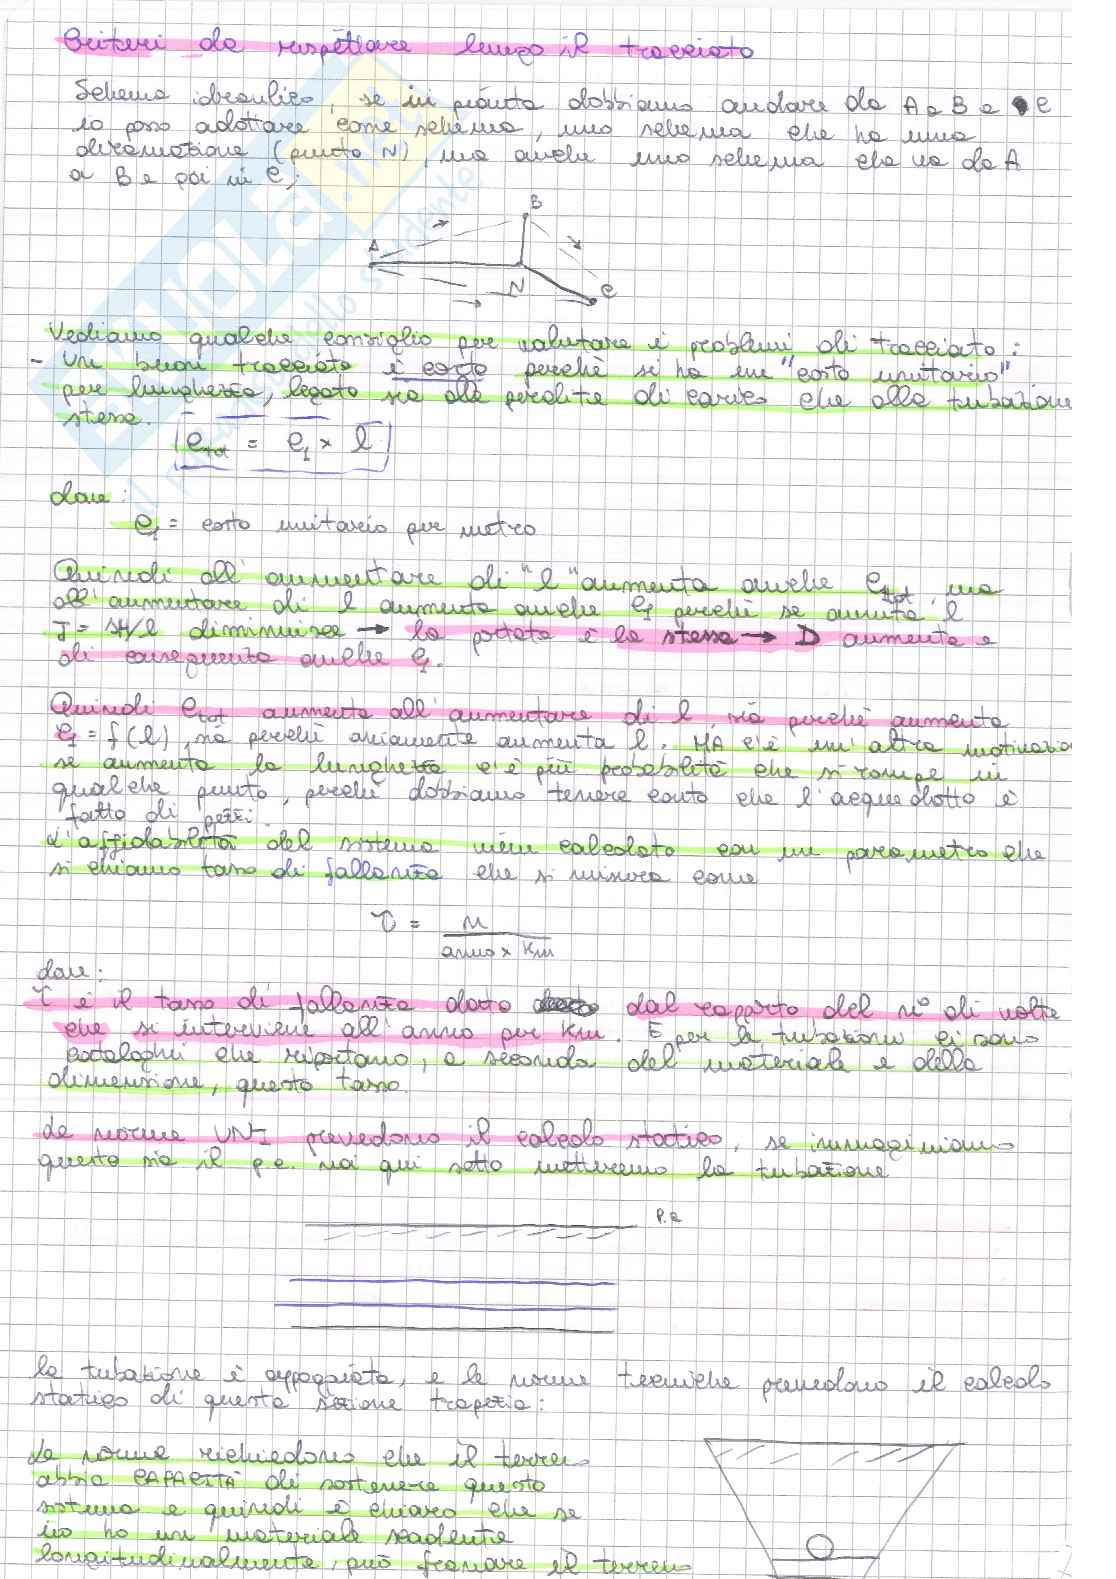 Criteri da rispettare lungo il tracciato
Schema idraulico, se in pianta dobbiamo andare da A a B e C
io posso adottare come schema, uno schema che ha una
diramazione (punto N), ma anche uno schema che va da A
a B e poi in C;
B
A
N
C
Vediamo qualche consiglio per valutare i problemi di tracciato:
- Un buon tracciato è corto perchè si ha un "costo unitario"
per lunghezza, legato sia alle perdite di carico che alla tubazione
stessa.
Ctot = C1 × l
dove:
C1 = costo unitario per metro
Quindi all'aumentare di "l" aumenta anche Ctot, ma
all'aumentare di l aumenta anche C1 perchè se aumenta l
J = ΔH/l diminuisce → la portata è la stessa → D aumenta e
di conseguenza anche C1.
Quindi Ctot aumenta all'aumentare di l, sia perchè aumenta
C1 = f(l), sia perchè ovviamente aumenta l. MA c'è un'altra motivazio
se aumenta la lunghezza c'è più probabilità che si rompe in
qualche punto, perchè dobbiamo tenere conto che l'acquedotto è
fatto di pezzi.
L'affidabilità del sistema viene calcolata con un parametro che
si chiama tasso di fallanza che si misura come
τ = n / anno × Km
dove:
τ è il tasso di fallanza dato dal rapporto del n° di volte
che si interviene all'anno per Km. E per le tubazioni ci sono
cataloghi che riportano, a seconda del materiale e della
dimensione, questo tasso.
Le norme UNI prevedono il calcolo statico, se immaginiamo
questo sia il p.c. noi qui sotto metteremo la tubazione
P.C
la tubazione è appoggiata, e le norme tecniche prevedono il calcolo
statico di questa sezione trapezia:
Le norme richiedono che il terreno
abbia CAPACITÀ di sostenere questo
sistema e quindi è chiaro che se
io ho un materiale scadente
longitudinalmente, può franare il terreno